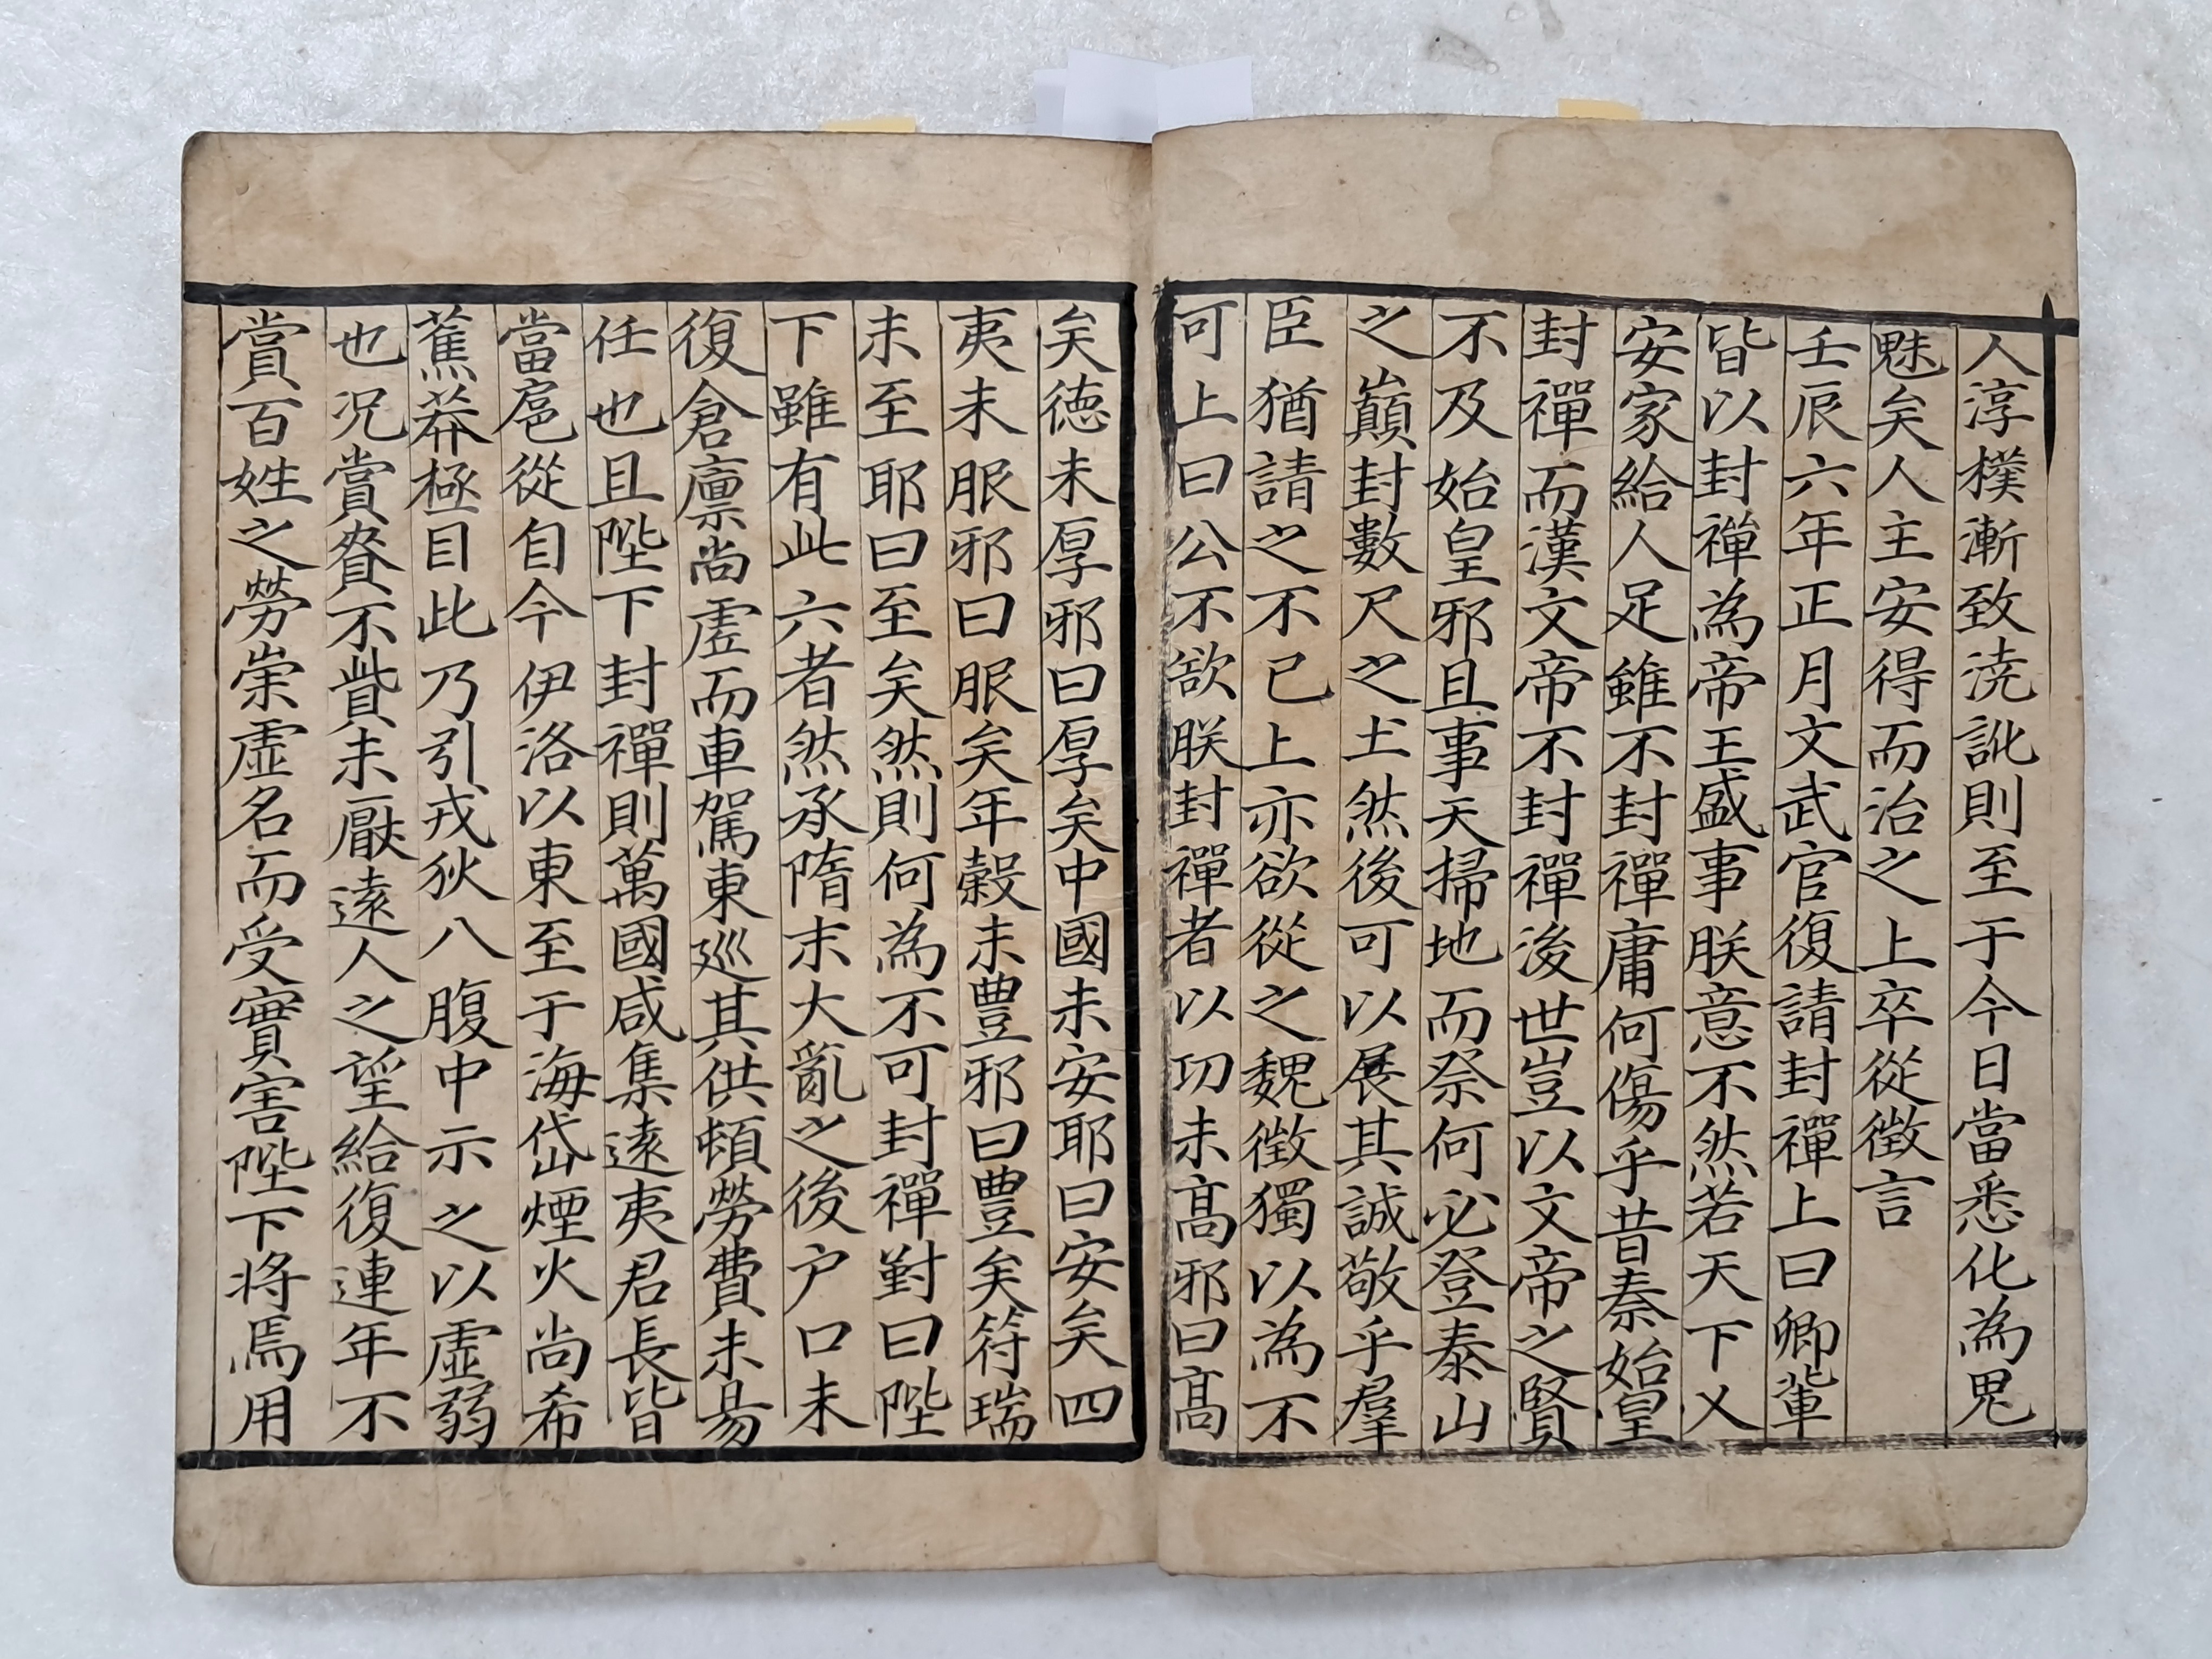 人淳樸漸致澆訛則至于今日當悉化為鬼
魅矣人主安得而治之上卒從徵言
壬辰六年正月文武官復請封禪上曰卿輩
皆以封禪為帝王盛事朕意不然若天下乂
安家給人足雖不封禪庸何傷乎昔秦始皇
封禪而漢文帝不封禪後世豈以文帝之賢
不及始皇邪且事天掃地而祭何必登泰山
之巔封數尺之土然後可以展其誠敬乎羣
臣猶請之不已上亦欲從之魏徵獨以為不
可上曰公不欲朕封禪者以功未高邪曰高
矣德未厚邪曰厚矣中國未安耶曰安矣四
夷未服邪曰服矣年榖未豊邪曰豊矣符瑞
未至耶曰至矣然則何為不可封禪對曰陛
下雖有此六者然承隋末大亂之後户口未
復倉廩尚虛而車駕東巡其供頓勞費未易
任也且陛下封禪則萬國咸集遠夷君長皆
當扈從自今伊洛以東至于海岱煙火尚希
蕉莽極目此乃引戎狄入腹中示之以虛弱
也况賞賚不貲未厭遠人之望給復連年不
賞百姓之勞崇虛名而受實害陛下將焉用